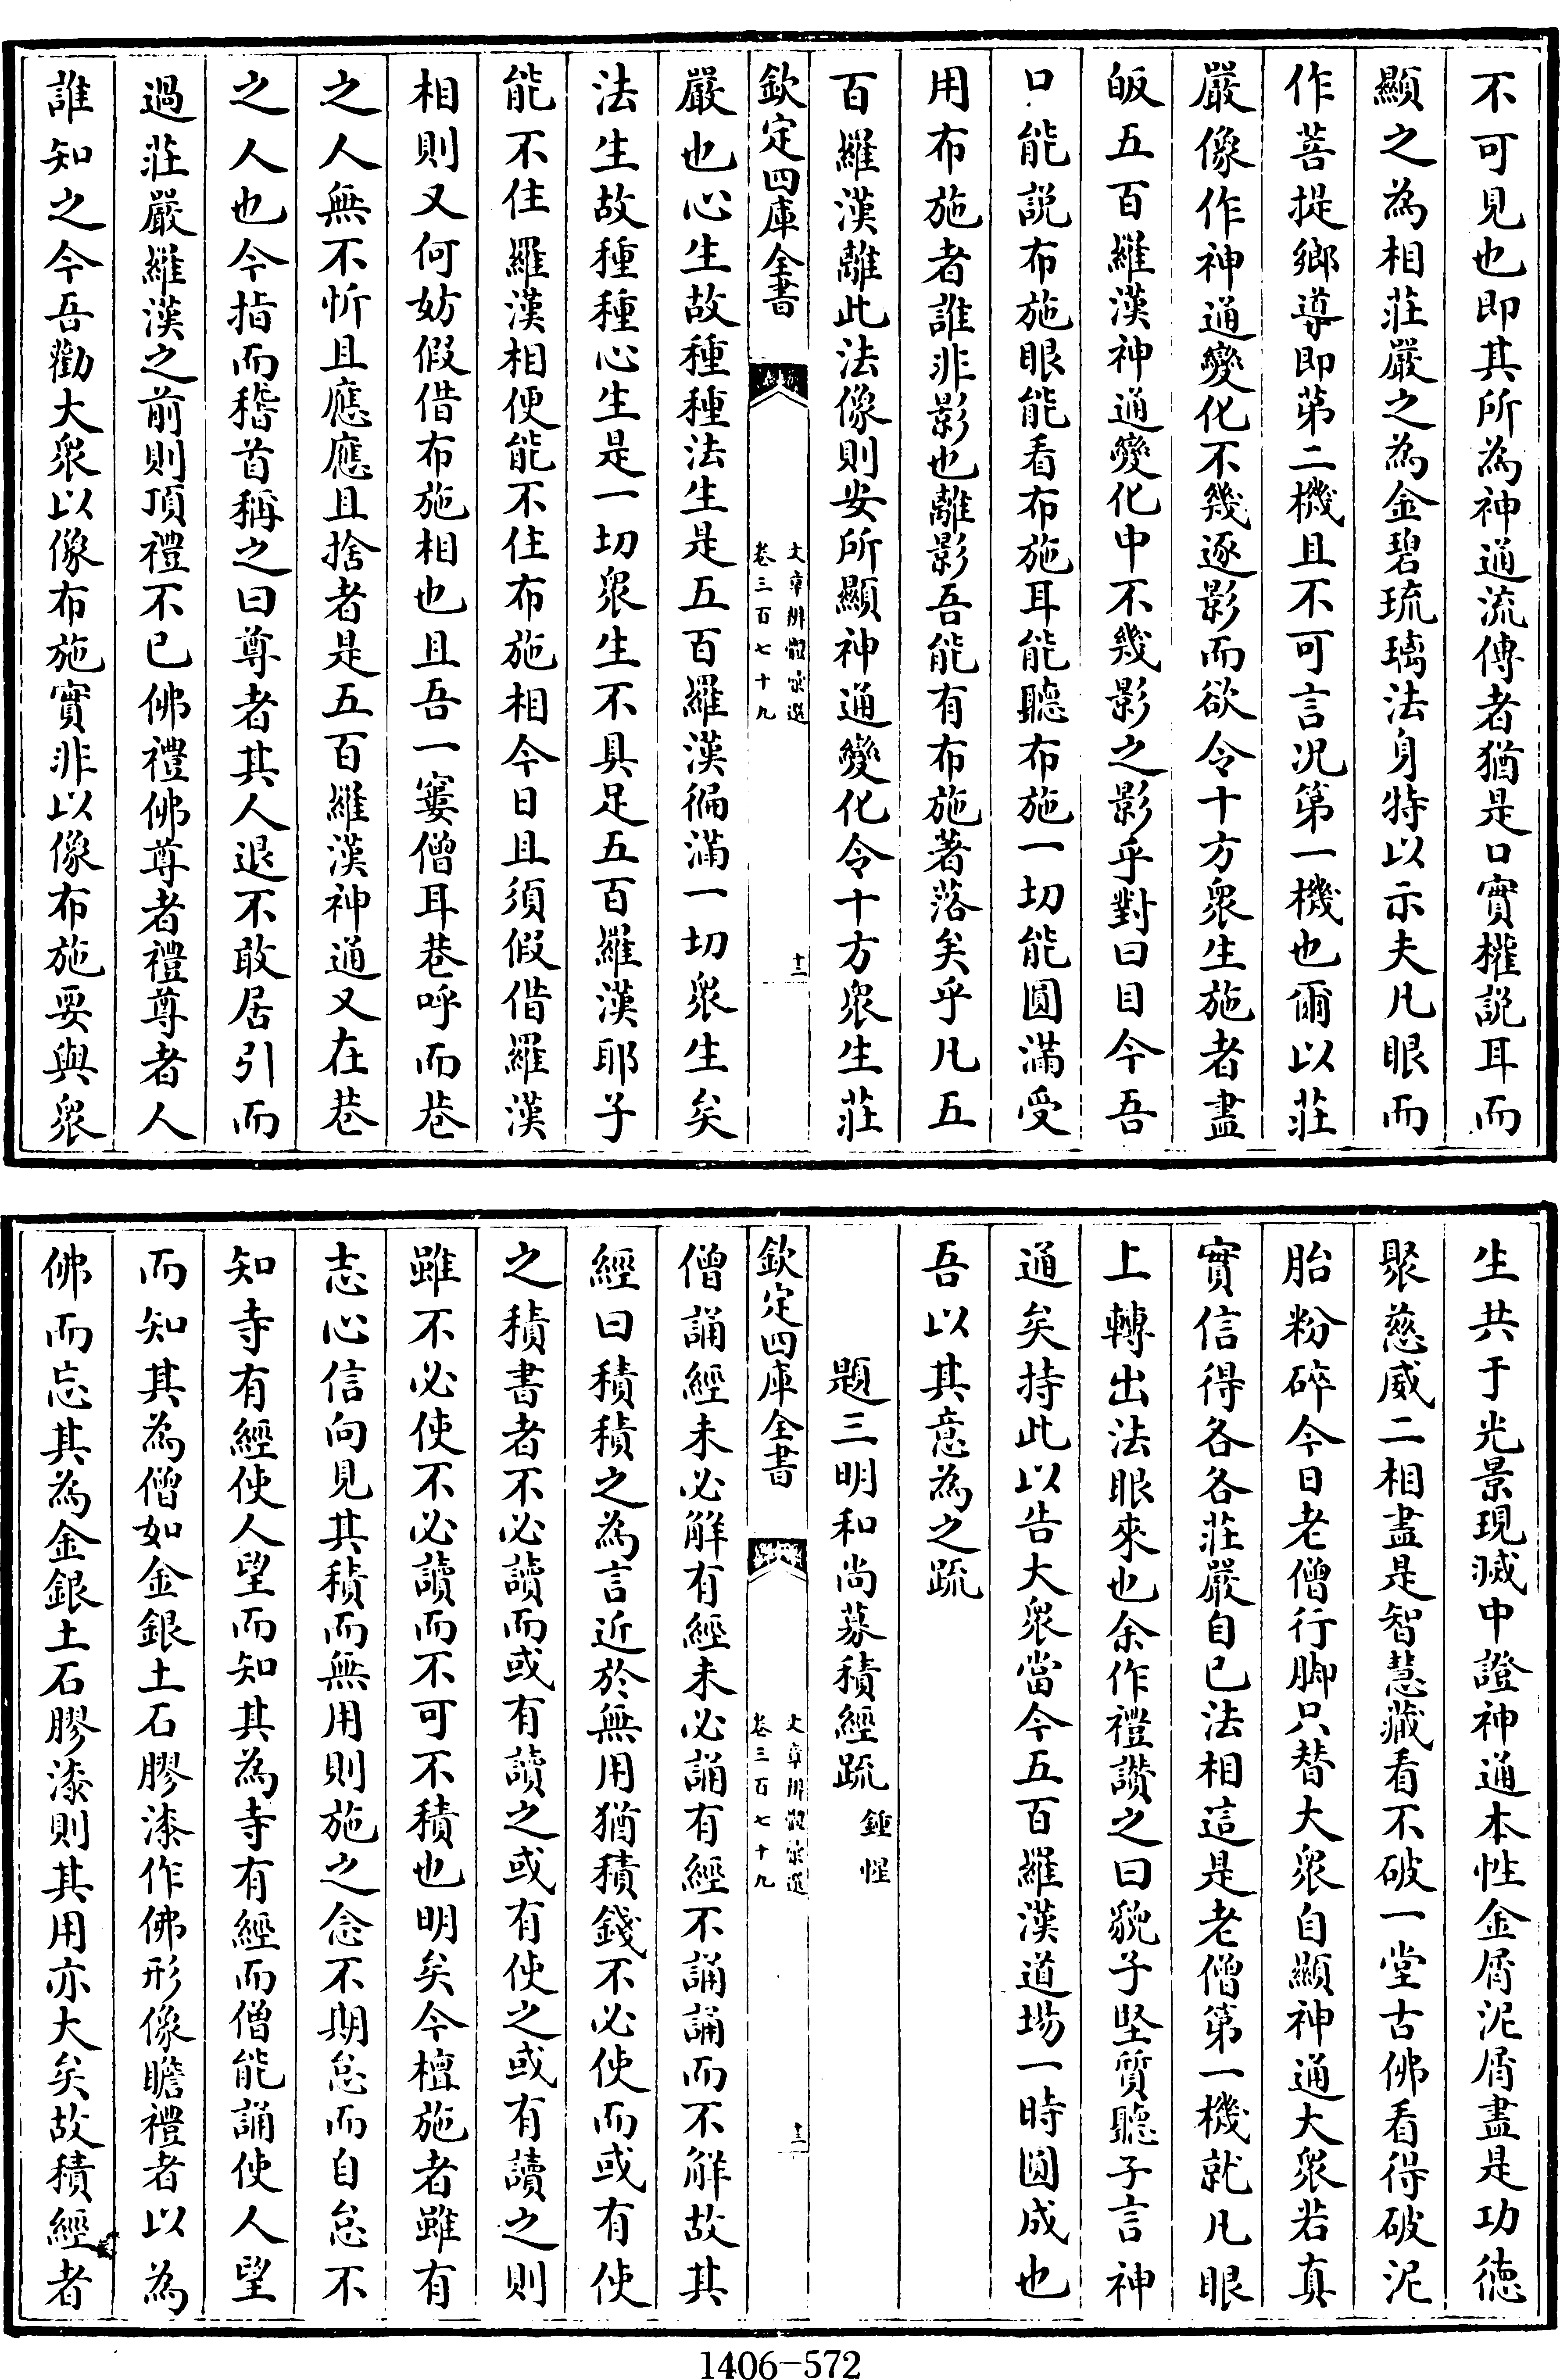 不可見也即其所為神通流傳者猶是口實權説耳而
顯之為相莊嚴之為金碧琉璃法身特以示夫凡眼而
作菩提鄉導即苐二機且不可言况第一機也爾以莊
嚴像作神通變化不幾逐影而欲令十方衆生施者盡
皈五百羅漢神通變化中不幾影之影乎對曰目今吾
口能説布施眼能看布施耳能聽布施一切能圓滿受
用布施者誰非影也離影吾能有布施著落矣乎凡五
百羅漢離此法像則安所顯神通變化令十方衆生莊
欽定四庫全書
文章辨體彚選
卷三百七十九
十二
嚴也心生故種種法生是五百羅漢徧滿一切衆生矣
法生故種種心生是一切衆生不具足五百羅漢耶子
能不住羅漢相便能不住布施相今日且須假借羅漢
相則又何妨假借布施相也且吾一窶僧耳巷呼而巷
之人無不忻且應應且捨者是五百羅漢神通又在巷
之人也今指而稽首稱之曰尊者其人退不敢居引而
過莊嚴羅漢之前則頂禮不已佛禮佛尊者禮尊者人
誰知之今吾勸大衆以像布施實非以像布施要與衆
生共于光景現滅中證神通本性金屑泥屑盡是功德
聚慈威二相盡是智慧藏看不破一堂古佛看得破泥
胎粉碎今日老僧行脚只替大衆自顯神通大衆若真
實信得各各莊嚴自已法相這是老僧第一機就凡眼
上轉出法眼來也余作禮讚之曰貌子堅質聽子言神
通矣持此以告大衆當今五百羅漢道場一時圓成也
吾以其意為之疏
題三明和尚募積經疏 鍾惺
欽定四庫全書
文章辨體彚選
卷三百七十九
十三
僧誦經未必解有經未必誦有經不誦誦而不解故其
經曰積積之為言近於無用猶積錢不必使而或有使
之積書者不必讀而或有讀之或有使之或有讀之則
雖不必使不必讀而不可不積也明矣今檀施者雖有
志心信向見其積而無用則施之念不期怠而自怠不
知寺有經使人望而知其為寺有經而僧能誦使人望
而知其為僧如金銀土石膠漆作佛形像瞻禮者以為
佛而忘其為金銀土石膠漆則其用亦大矣故積經者
1406-572